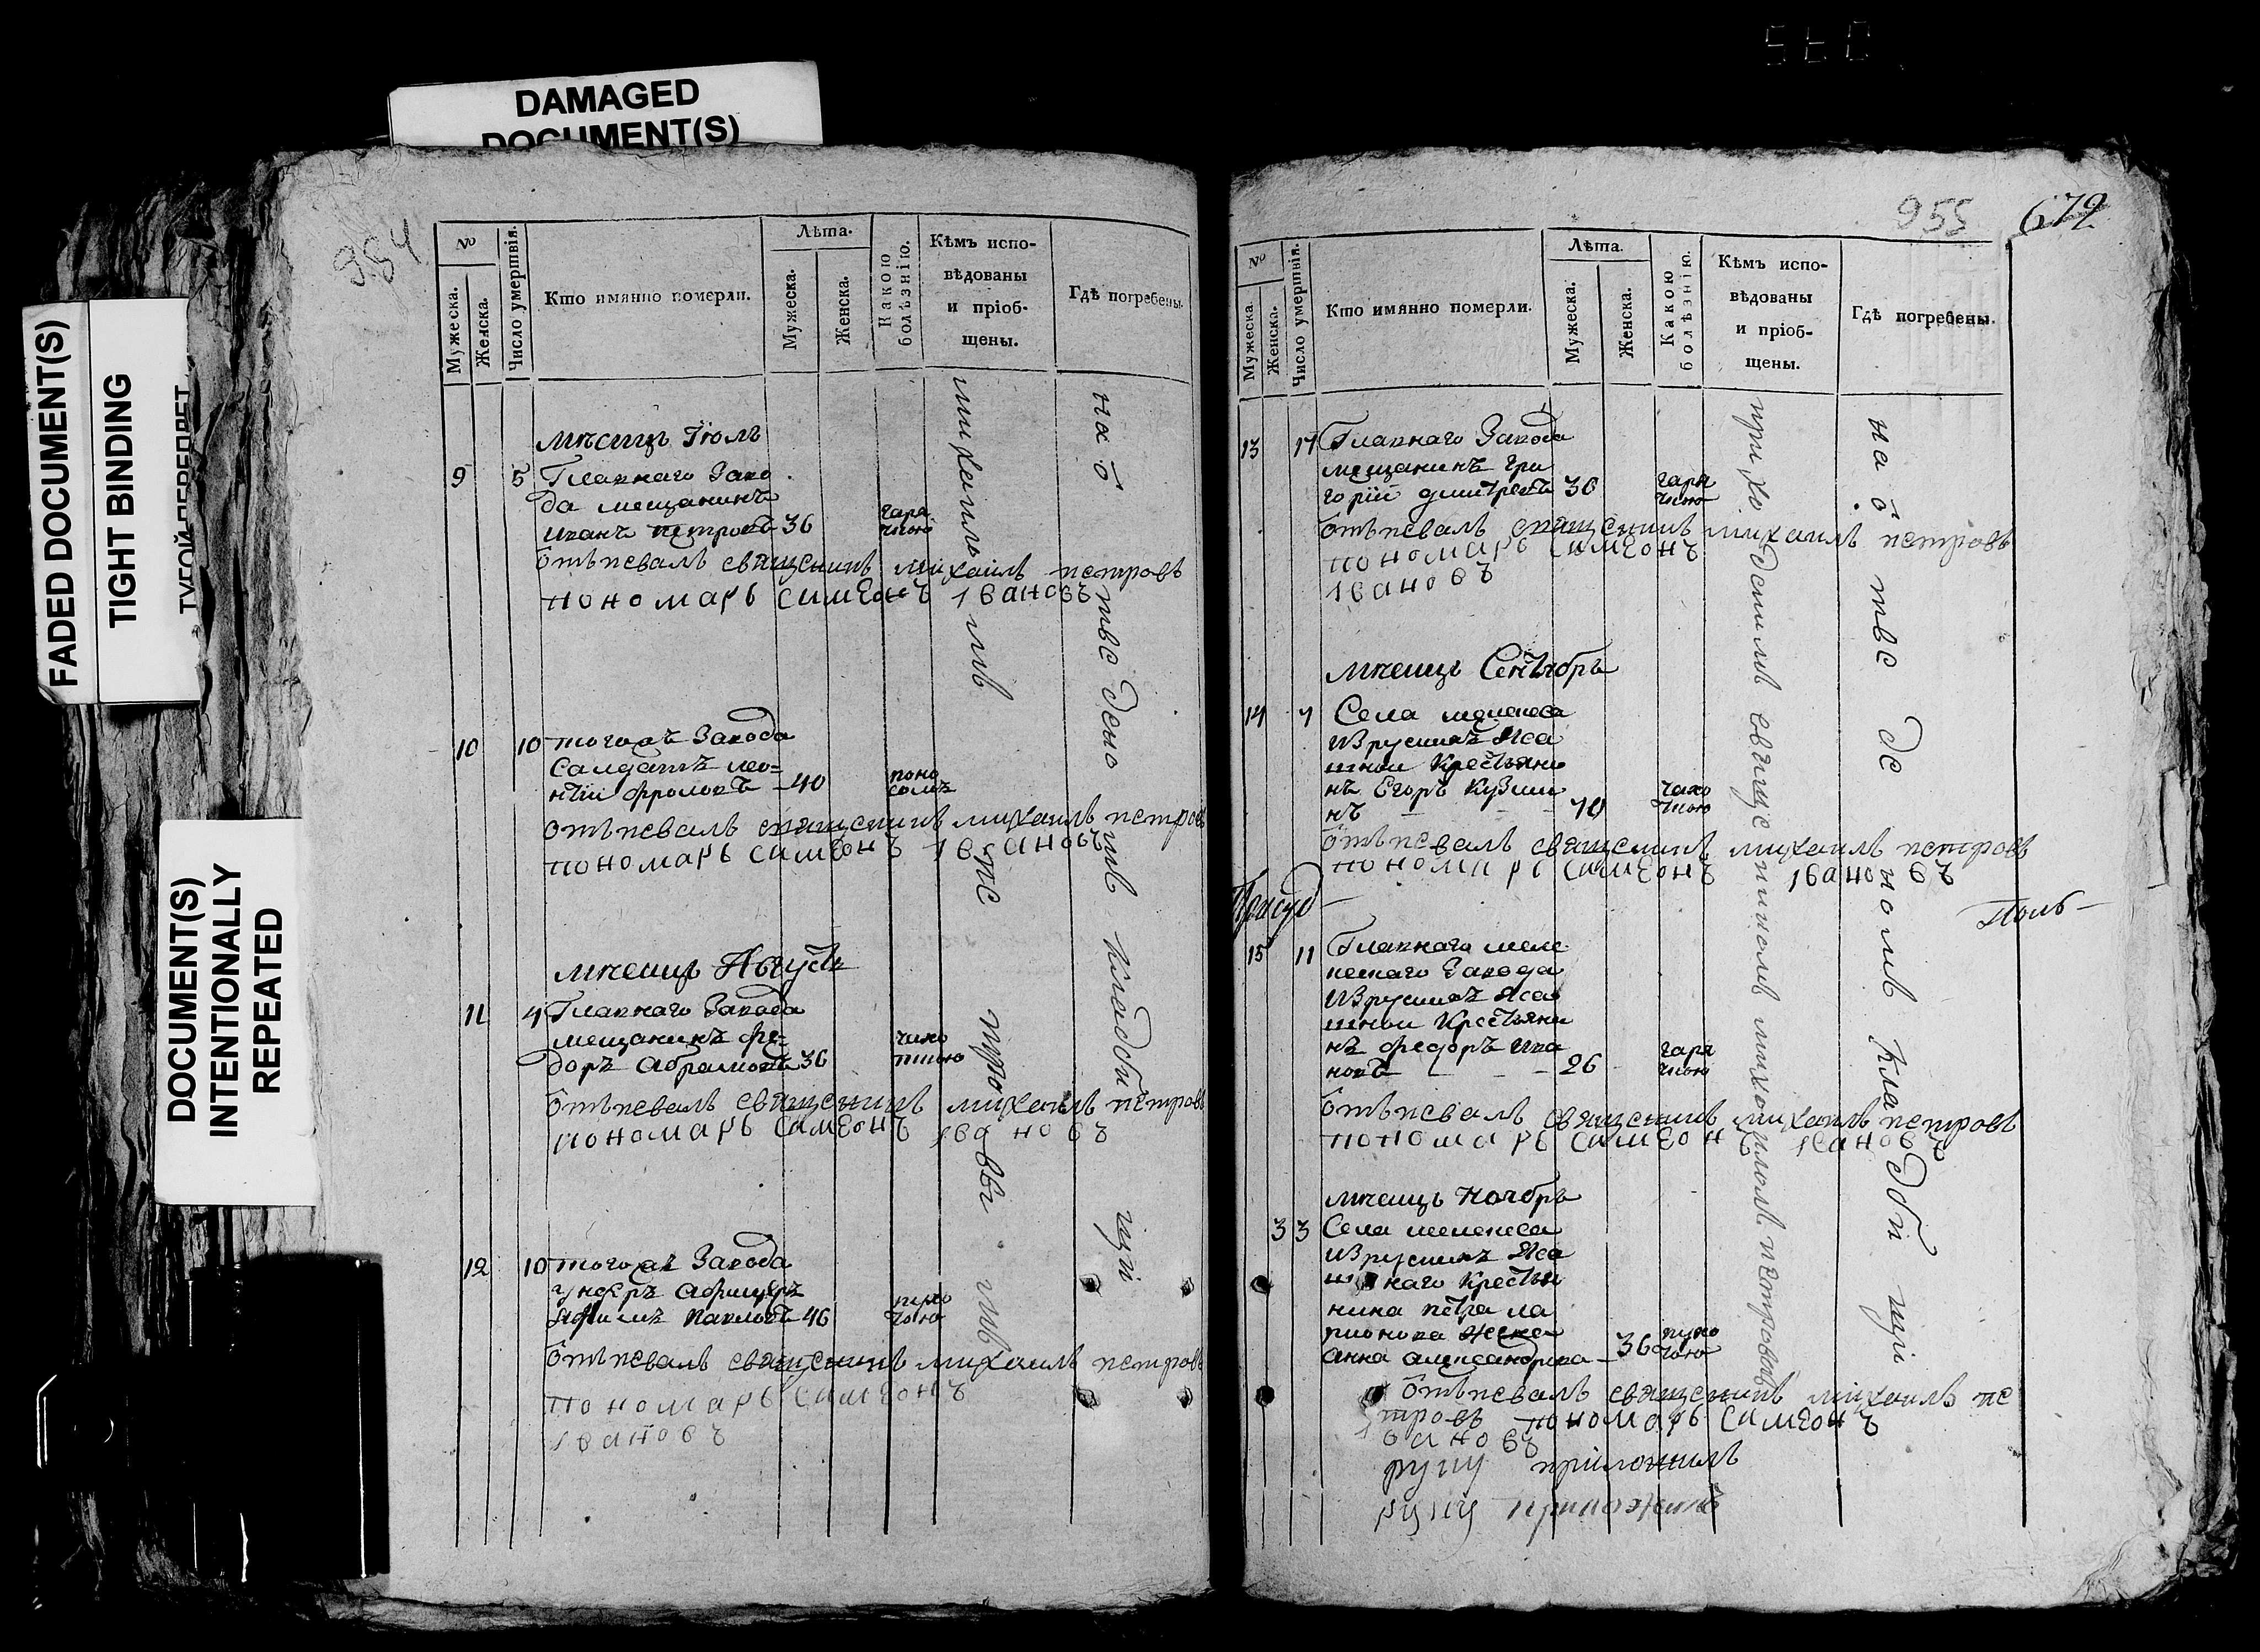 DAMAGED
DOCUMENT(S)
FADED DOCUMENT(S)
TIGHT BINDING
ТУГОЙ ПЕРЕПЛЕТ
DOCUMENT(S)
INTENTIONALLY
REPEATED
984
№
Мужеска.
Женска.
Число умертвія.
Кто имянно померли.
Лѣта.
Мужеска.
Женска.
Какою
болѣзнію.
Кѣмъ испо-
вѣдованы
и пріоб-
щены.
Гдѣ погребены.
мѣсицъ Іюль
9 5 Главнаго Заво
да мещанинъ
иванъ петровъ 36 гаря
чкою
отѣпевалъ свящсникъ михаилъ петровъ
пономарь симеонъ івановъ
10 10 тогожъ Завода
Салдатъ лео-
нтїи фроловъ 40 поно
сомъ
отѣпевалъ свящсникъ михаилъ петровъ
пономарь симеонъ івановъ
мѣсицъ Августъ
11 4 Главнаго Завода
мещанинъ фе-
доръ абрамовъ 36 чихо
ткою
отѣпевалъ свящсникъ михаилъ петровъ
пономарь симеонъ івановъ
12 10 тогожъ Завода
унтеръ афицеръ
павловъ 46
отѣпевалъ свящсникъ михаилъ петровъ
пономарь симеонъ
івановъ
михаиломъ петровымъ
на отведеномъ кладбищі
955
672
№
Мужеска.
Женска.
Число умертвія.
Кто имянно померли.
Лѣта.
Мужеска.
Женска.
Какою
болѣзнію.
Кѣмъ испо-
вѣдованы
и пріоб-
щены.
Гдѣ погребены.
13 17 Главнаго Завода
мещанинъ гри
горїи дмитревъ 30 гаря
чкою
отѣпевалъ свящсникъ михаилъ петровъ
пономарь симеонъ
івановъ
мѣсицъ Сентябрь
14 7 Села мелекеса
Изрусскихъ Яса
шнои Крестьяни
нъ Егоръ Кузми
нъ 70 чахо
ткою
отѣпевалъ свящсникъ михаилъ петровъ
пономарь симеонъ івановъ
15 11 Главнаго меле
кескаго Завода
Изрусскихъ Яса
шнои Крестьяни
нъ федоръ ива
новъ 26 гаря
чкою
отѣпевалъ свящсникъ михаилъ петровъ
пономарь симеонъ івановъ
мѣсицъ Ноябрь
3 3 Села мелекеса
Изрусскихъ Яса
шнаго Крестья
нина петра ла
рионова жена
анна александрова 36
отѣпевалъ свящсникъ михаилъ пе
тровъ пономарь симеонъ
івановъ
руку приложилъ
руку приложилъ
приходскимъ свящсникомъ михаиломъ петровымъ
на отведеномъ кладбищі